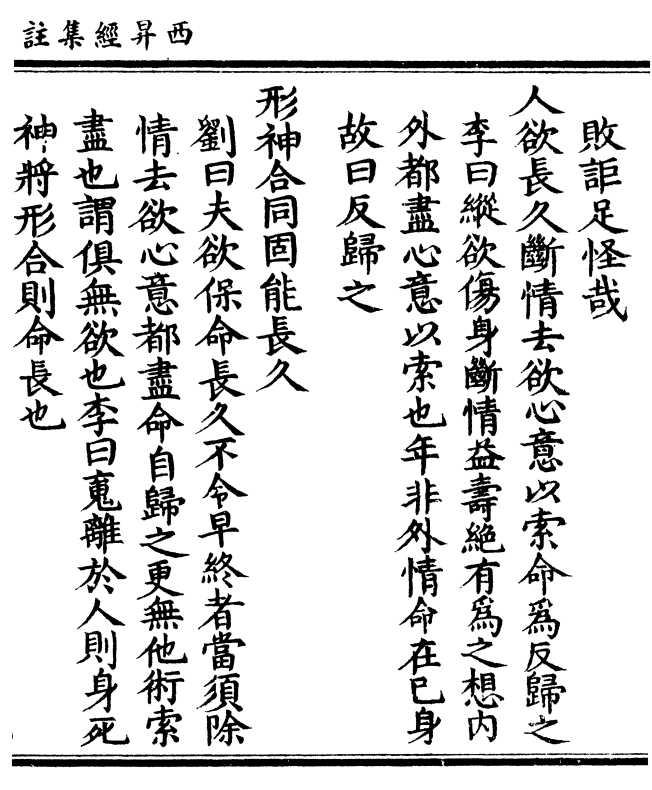 西昇經集註
敗詎足怪哉
人欲長久斷情去欲心意以索命爲反歸之
李曰縱欲傷身斷情益壽絶有爲之想内
外都盡心意以索也年非外情命在已身
故曰反歸之
形神合同固能長久
劉曰夫欲保命長久不令早終者當須除
情去欲心意都盡命自歸之更無他術索
盡也謂俱無欲也李曰䰟離於人則身死
神將形合則命長也